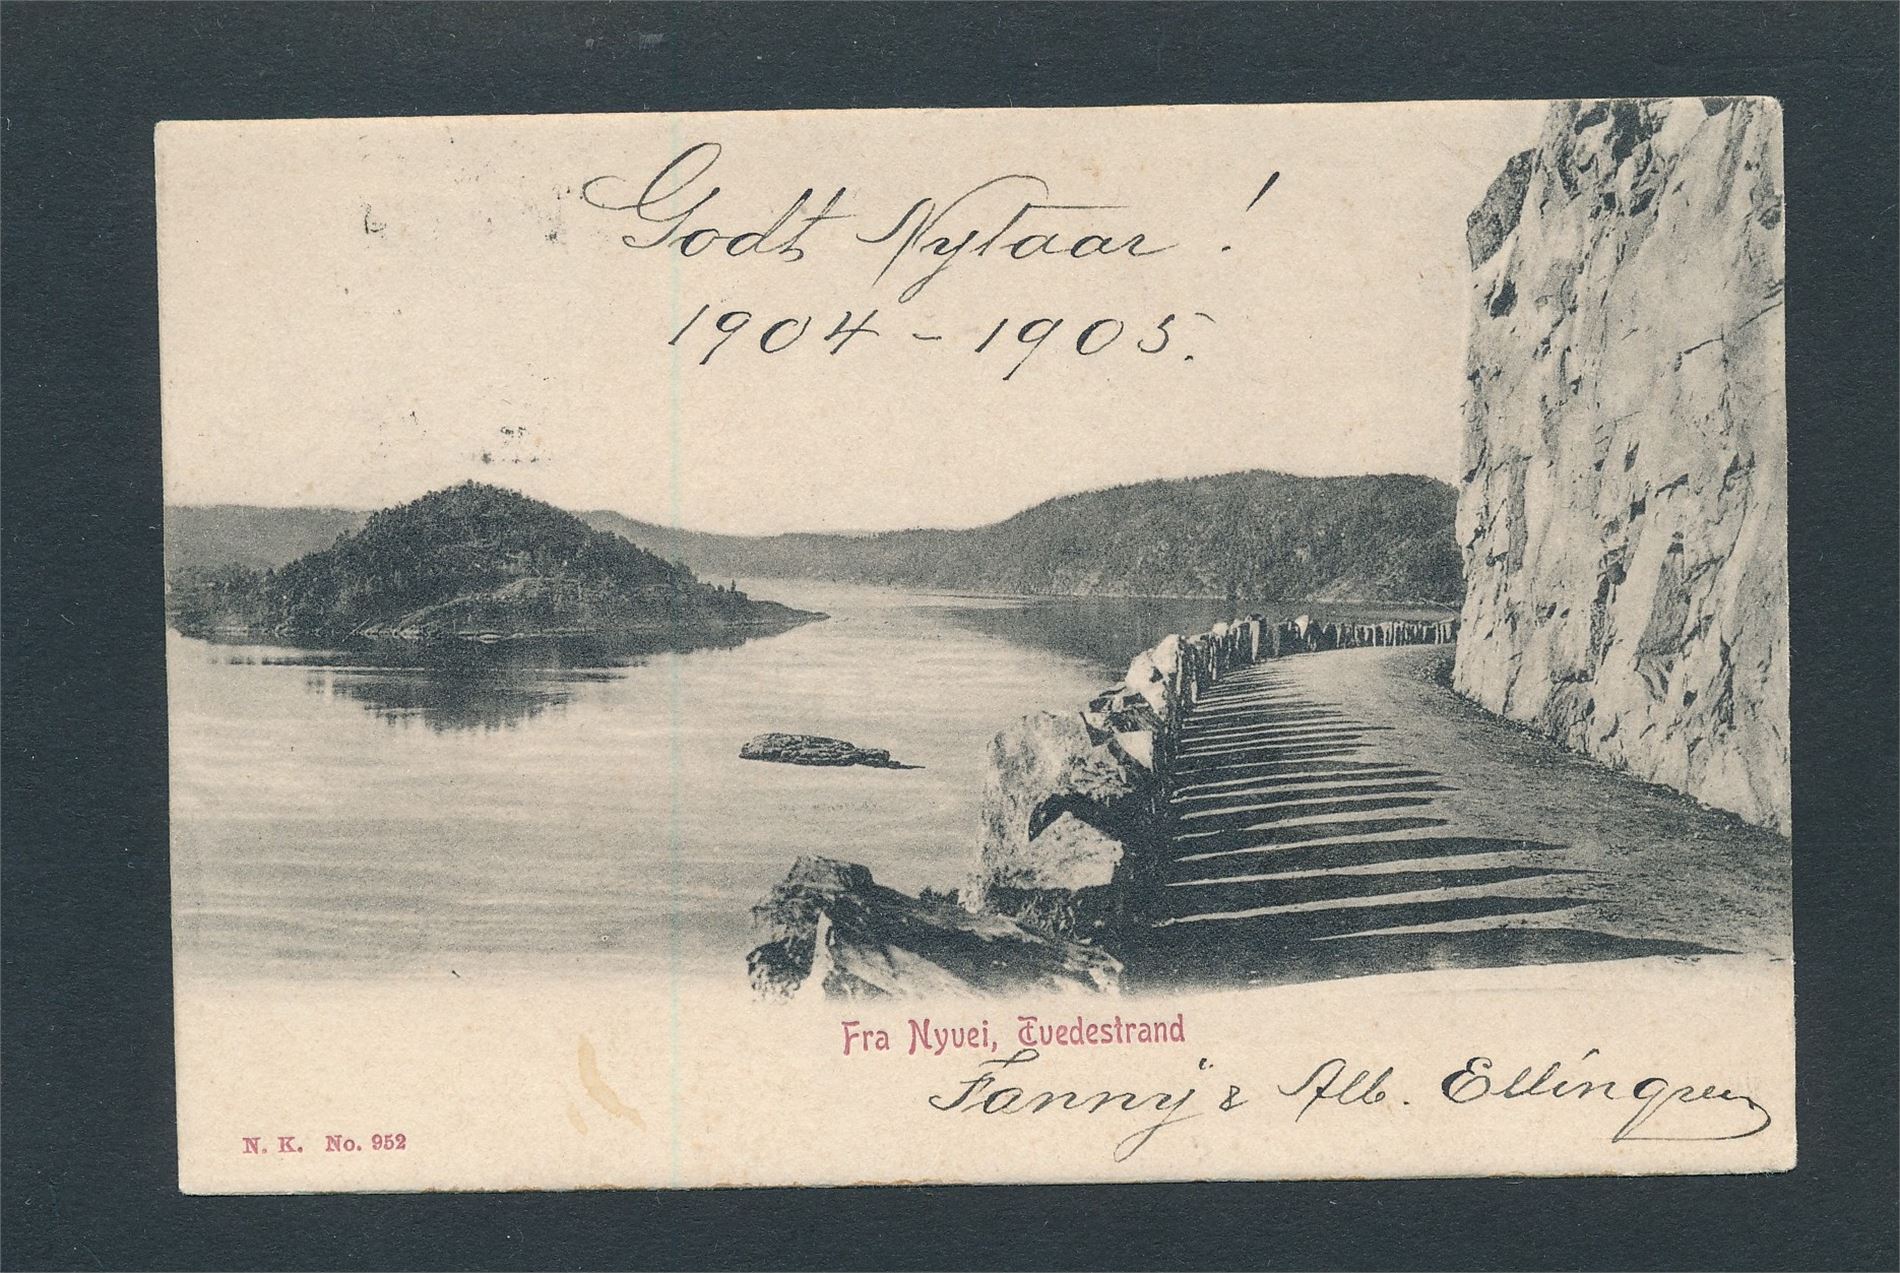 Godt Nytaar!
1904 - 1905.
Fra Nyvei, Tvedestrand
Fannÿ & Alb. Ellingren
N. K. No. 952